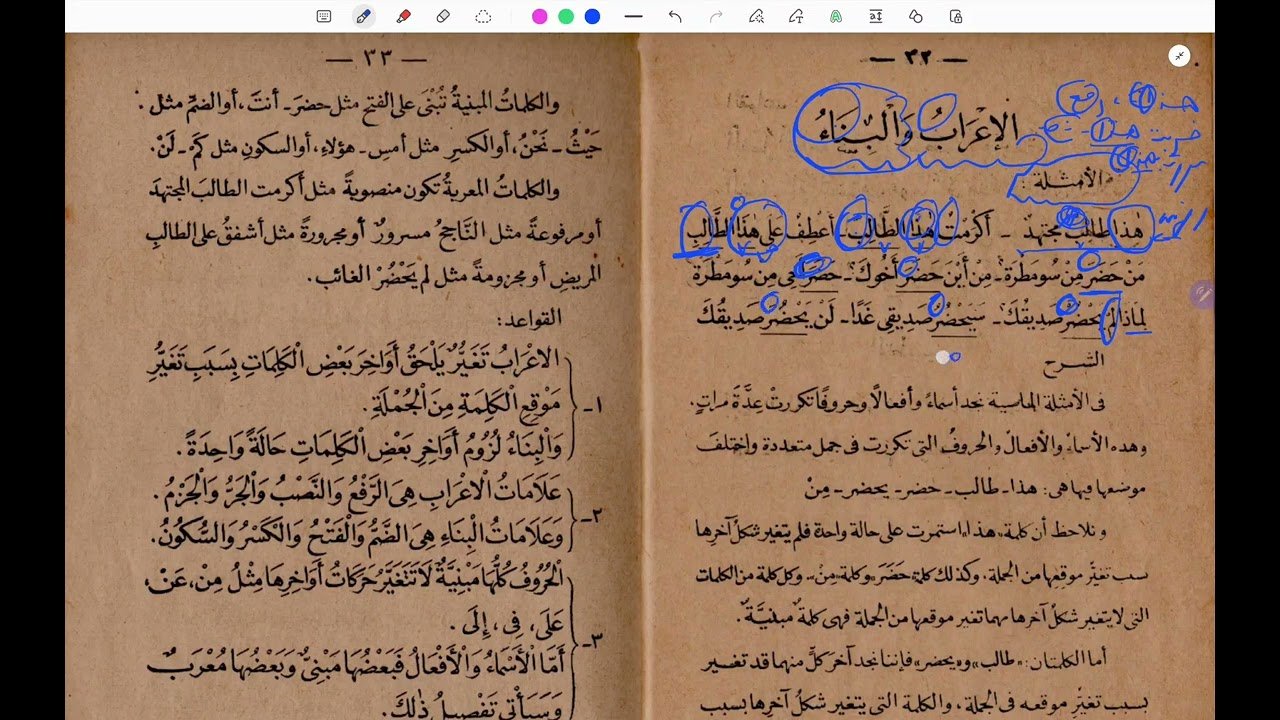 — ٣٢ —
الإعْرَابُ وَالْبِنَاءُ
الأمثلة:
هٰذا طالبٌ مجتهدٌ - أكرَمْتُ هٰذا الطَّالِبَ - أعْطِفُ عَلَى هٰذَا الطَّالِبِ
مَنْ حَضَرَ مِنْ سُومَطْرَةَ؟ - مِنْ أَيْنَ حَضَرَ أَخُوكَ؟ - حَضَرَ مِنْ سُومَطْرَةَ
لِمَاذا لَمْ يَحْضُرْ صَدِيقُكَ؟ - سَيَحْضُرُ صَدِيقِي غَدًا - لَنْ يَحْضُرَ صَدِيقُكَ
الشرح
فى الأمثلة الماسية نجد أسماءً وأفعالًا وحروفًا تكررتْ عِدَّةَ مراتٍ.
وهذه الأسماءُ والأفعالُ والحروفُ التى تكررت فى جمل متعددة واختلفَ
موضعها فيها هى: هذا - طالب - حضر - يحضر - مِنْ
ونلاحظ أن كلمة «هذا» استمرت على حالة واحدة فلم يتغير شكلُ آخرها
بسبب تغيُّرِ موقعها من الجملة، وكذلك كلمة حَضَرَ وكلمة «مِنْ» وكل كلمة من الكلمات
التى لا يتغير شكلُ آخرها مهما تغير موقعها من الجملة فهى كلمةٌ مبنيَّةٌ.
أما الكلمتان: «طالب» و«يحضر» فإننا نجد آخر كلٍّ منهما قد تغير
بسبب تغيُّرِ موقعه فى الجملة، والكلمة التى يتغير شكلُ آخرها بسبب
— ٣٣ —
والكلماتُ المبنيةُ تُبْنَى على الفتح مثل حضرَ - أنتَ، أو الضمِّ مثل
حَيْثُ - نَحْنُ، أو الكسرِ مثل أمسِ - هؤلاءِ، أو السكونِ مثل كَمْ - لَنْ.
والكلماتُ المعربةُ تكون منصوبةً مثل أكرمت الطالبَ المجتهدَ
أو مرفوعةً مثل النَّاجحُ مسرورٌ أو مجرورةً مثل أشفقُ على الطالبِ
المريضِ أو مجزومةً مثل لم يَحْضُرْ الغائب.
القواعد:
١- الاعْرَابُ تَغَيُّرٌ يَلْحَقُ أَوَاخِرَ بَعْضِ الْكَلِمَاتِ بِسَبَبِ تَغَيُّرِ
مَوْقِعِ الْكَلِمَةِ مِنَ الْجُمْلَةِ.
وَالْبِنَاءُ لُزُومُ أَوَاخِرِ بَعْضِ الْكَلِمَاتِ حَالَةً وَاحِدَةً.
٢- عَلَامَاتُ الْاعْرَابِ هِىَ الرَّفْعُ وَالنَّصْبُ وَالْجَرُّ وَالْجَزْمُ.
وَعَلَامَاتُ الْبِنَاءِ هِىَ الضَّمُّ وَالْفَتْحُ وَالْكَسْرُ وَالسُّكُونُ.
٣- الْحُرُوفُ كُلُّهَا مَبْنِيَّةٌ لَا تَتَغَيَّرُ حَرَكَاتُ أَوَاخِرِهَا مِثْلُ مِنْ، عَنْ،
عَلَى، فِى، إِلَى.
أَمَّا الْأَسْمَاءُ وَالْأَفْعَالُ فَبَعْضُهَا مَبْنِىٌّ وَبَعْضُهَا مُعْرَبٌ
وَسَيَأْتِى تَفْصِيلُ ذٰلِكَ.